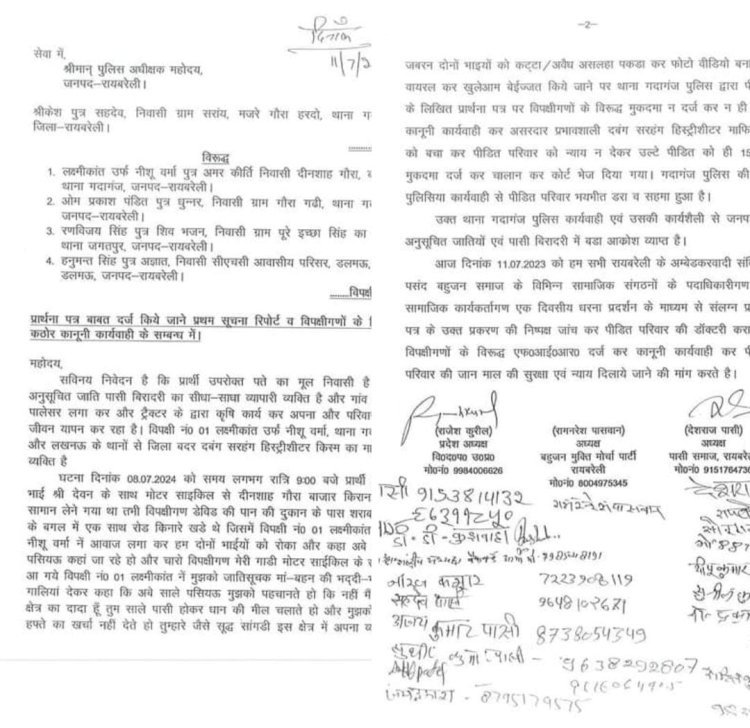 दिनांक
11/7/2
सेवा में,
श्रीमान् पुलिस अधीक्षक महोदय,
जनपद–रायबरेली।
श्रीकेश पुत्र सहदेव, निवासी ग्राम सरांय, मजरे गौरा हरदो, थाना ग
जिला–रायबरेली।
विरूद्ध
1. लक्ष्मीकांत उर्फ नीशू वर्मा पुत्र अमर कीर्ति निवासी दीनशाह गौरा,
थाना गदागंज, जनपद–रायबरेली।
2. ओम प्रकाश पंडित पुत्र घुन्नर, निवासी ग्राम गौरा गढी, थाना ग
जनपद–रायबरेली।
3. रणविजय सिंह पुत्र शिव भजन, निवासी ग्राम पूरे इच्छा सिंह का
थाना जगतपुर, जनपद–रायबरेली।
4. हनुमन्त सिंह पुत्र अज्ञात, निवासी सीएचसी आवासीय परिसर, डलमऊ,
डलमऊ, जनपद–रायबरेली।
........विपक्षी
प्रार्थना पत्र बाबत दर्ज किये जाने प्रथम सूचना रिपोर्ट व विपक्षीगणों के
कठोर कानूनी कार्यवाही के सम्बन्ध में।
महोदय,
सविनय निवेदन है कि प्रार्थी उपरोक्त पते का मूल निवासी है
अनुसूचित जाति पासी बिरादरी का सीधा–साधा व्यापारी व्यक्ति है और गांव
पालेसर लगा कर और ट्रैक्टर के द्वारा कृषि कार्य कर अपना और परिवा
जीवन यापन कर रहा है। विपक्षी नं0 01 लक्ष्मीकांत उर्फ नीशू वर्मा, थाना ग
और लखनऊ के थानों से जिला बदर दबंग सरहंग हिस्ट्रीशीटर किस्म का मा
व्यक्ति है
घटना दिनांक 08.07.2024 को समय लगभग रात्रि 9:00 बजे प्रार्थी
भाई श्री देवन के साथ मोटर साइकिल से दीनशाह गौरा बाजार किरान
सामान लेने गया था तभी विपक्षीगण डेविड की पान की दुकान के पास शराब
के बगल में एक साथ रोड किनारे खडे थे जिसमें विपक्षी नं0 01 लक्ष्मीकांत
नीशू वर्मा नें आवाज लगा कर हम दोनों भाईयों को रोका और कहा अबे
पसियऊ कहां जा रहे हो और चारो विपक्षीगण मेरी गाडी मोटर साईकिल के
आ गये विपक्षी नं0 01 लक्ष्मीकांत नें मुझको जातिसूचक मां–बहन की भद्दी–
गालियां देकर कहा कि अबे साले पसियऊ मुझको पहचानते हो कि नहीं मैं
क्षेत्र का दादा हूँ तुम साले पासी होकर धान की मील चलाते हो और मुझको
हफ्ते का खर्चा नहीं देते हो तुम्हारे जैसे सूद्ध सांगडी इस क्षेत्र में अपना
–2–
जबरन दोनों भाइयों को कट्टा/अवैध असलहा पकडा कर फोटो वीडियो बना
वायरल कर खुलेआम बेईज्जत किये जाने पर थाना गदागंज पुलिस द्वारा पी
के लिखित प्रार्थना पत्र पर विपक्षीगणों के विरूद्ध मुकदमा न दर्ज कर न ही
कानूनी कार्यवाही कर असरदार प्रभावशाली दबंग सरहंग हिस्ट्रीशीटर माफि
को बचा कर पीडित परिवार को न्याय न देकर उल्टे पीडित को ही 15
मुकदमा दर्ज कर चालान कर कोर्ट भेज दिया गया। गदागंज पुलिस की
पुलिसिया कार्यवाही से पीडित परिवार भयभीत डरा व सहमा हुआ है।
उक्त थाना गदागंज पुलिस कार्यवाही एवं उसकी कार्यशैली से जनप
अनुसूचित जातियों एवं पासी बिरादरी में बडा आकोश व्याप्त है।
आज दिनांक 11.07.2023 को हम सभी रायबरेली के अम्बेडकरवादी संवि
पसंद बहुजन समाज के विभिन्न सामाजिक संगठनों के पदाधिकारीगण
सामाजिक कार्यकर्तागण एक दिवसीय धरना प्रदर्शन के माध्यम से संलग्न प्र
पत्र के उक्त प्रकरण की निष्पक्ष जांच कर पीडित परिवार की डॉक्टरी करा
विपक्षीगणों के विरूद्ध एफ0आई0आर0 दर्ज कर कानूनी कार्यवाही कर पी
परिवार की जान माल की सुरक्षा एवं न्याय दिलाये जाने की मांग करते है।
(राजेश कुरील) (रामनरेश पासवान) (देशराज पासी)
प्रदेश अध्यक्ष अध्यक्ष अध्यक्ष
वि0द0पा0 उ0प्र0 बहुजन मुक्ति मोर्चा पार्टी पासी समाज, रायबरे
मो0नं0 9984006626 रायबरेली मो0नं0 9151764730
मो0नं0 8004975345
9153814132
7223908119
अजय कुमार पासी 8738054349
सुधीर कुमार पासी – 9638292807
8795179575